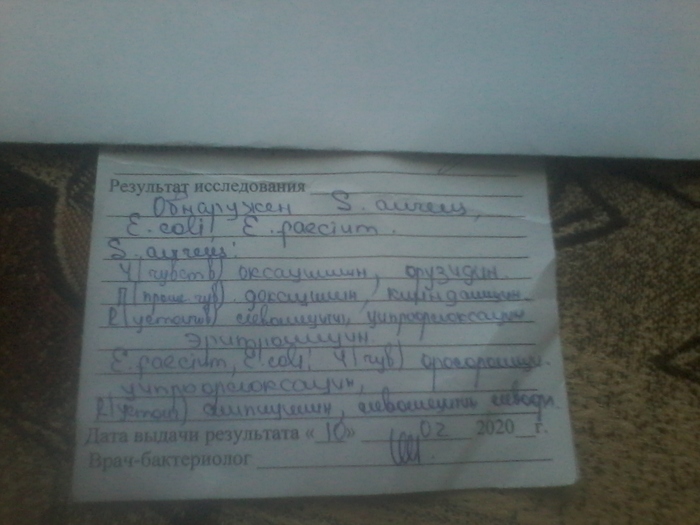 Результат исследования
Обнаружен S. aureus,
E. coli E. faecium.
S. aureus:
Ч (чувств) оксациллин, фузидин.
П (пром. чув) доксициллин, клиндамицин.
R (устойчив) левомицетин, ципрофлоксацин
эритромицин.
E. faecium, E. coli: Ч (чув)
ципрофлоксацин,
R (устой) ампициллин, левомецетин
Дата выдачи результата «10» 02 2020 г.
Врач-бактериолог